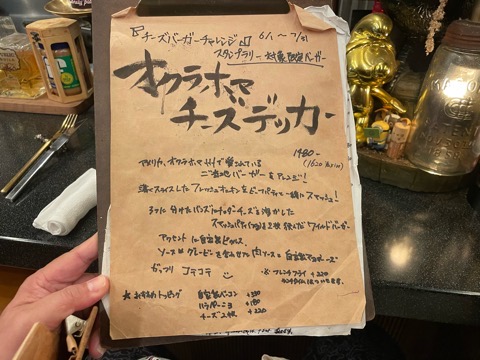 『チーズバーガーチャレンジ』 6/1～7/31
スタンプラリー 対象限定バーガー
オクラホマ
チーズデッカー
1480-
(1620 税込)
アメリカ、オクラホマ州で愛されている
ご当地バーガーをアレンジ!
薄くスライスしたフレッシュオニオンをビーフパティと一緒にスマッシュ!
3つに分けたバンズにチェダーチーズと溶かした
スマッシュパティ 2枚を 挟んだワイルドバーガー
アクセントに自家製ピクルス
ソースはグレービーを 肉ソースと自家製マヨネーズ
がっつり コテコテ
※フレンチフライ +220
★おすすめトッピング 自家製ベーコン +330
ハラペーニョ +180
チーズ2枚 +220